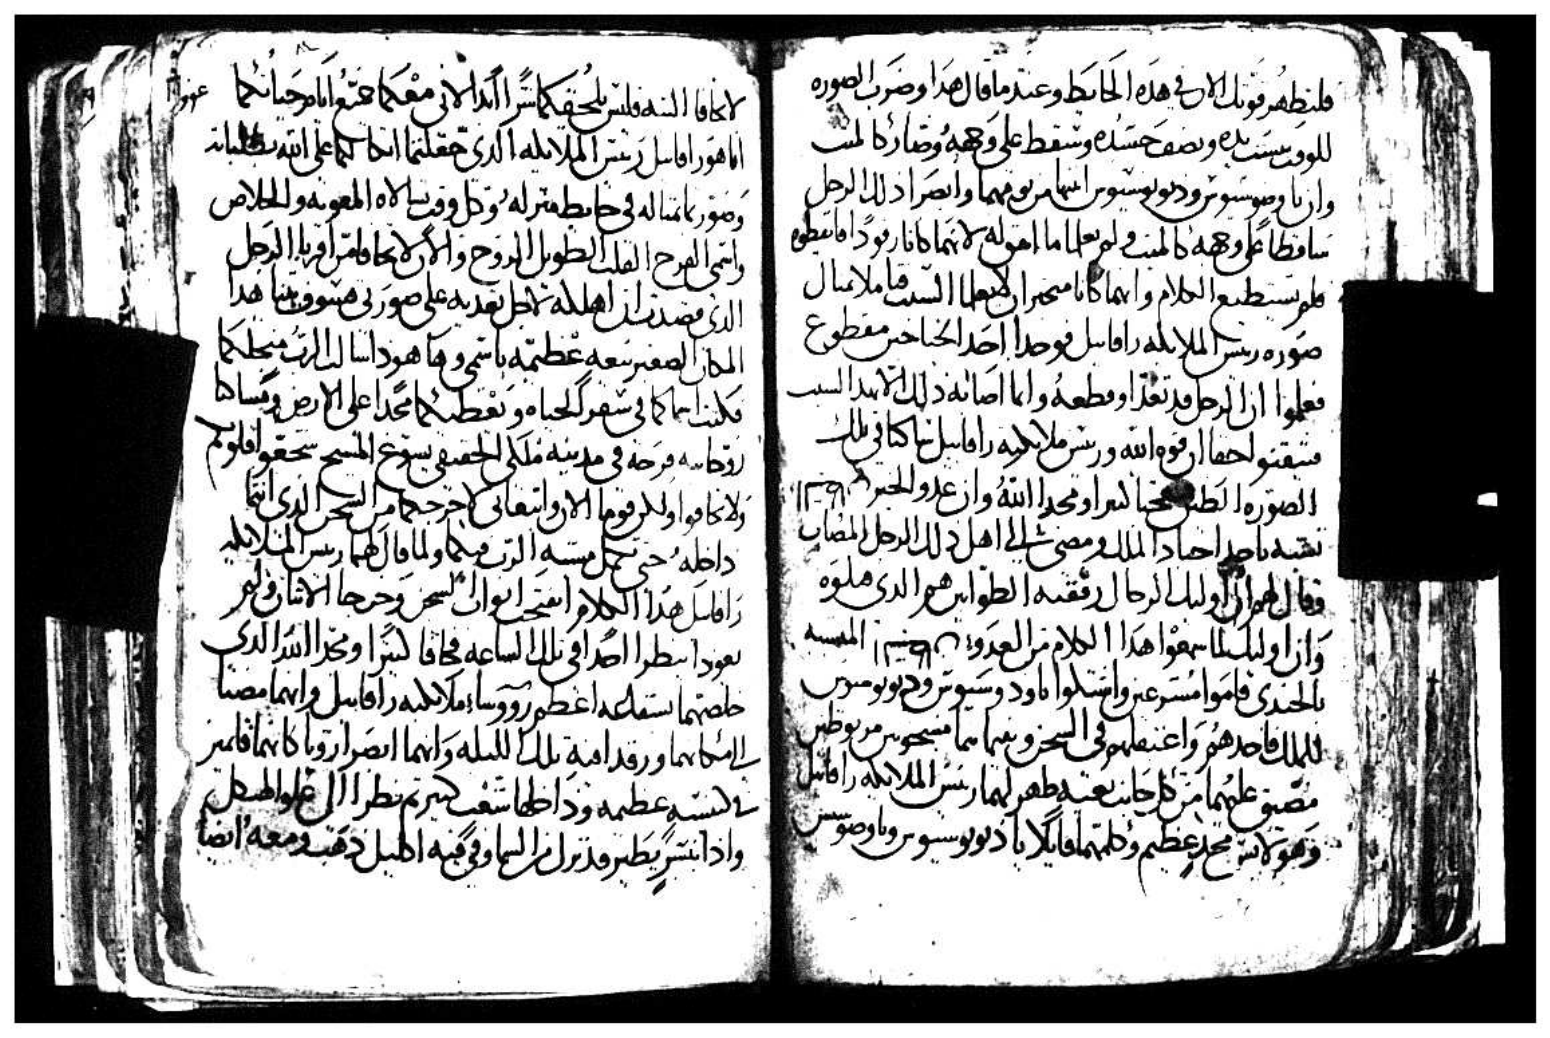 فلتظهر قوتك الان في هذه الحايط وعند ما قال هذا وضرب الصوره
للوقت يبست يده ونصف جسده وسقط على وجهه وصار كالميت
وان تاوضوسيوس وديونوسيوس انتبها من نومهما وابصرا ذلك الرجل
ساقطا على وجهه كالميت ولم يعلما ما اهو له لانهما كانا رقودا فايقظوه
فلم يستطيع الكلام وانهما كانا متحيران لا يعلما السبب فتاملا تمثال
صوره رييس الملايكه رافاييل فوجدا احد الجناحين مقطوع
فعلموا ان الرجل قد تعدا وقطعه وانما اصابه ذلك الا بهدا السبب
فتيقنو احقا ان قوه الله ورييس ملايكته رافاييل ساكنا في تلك
الصوره الطين عجبا كثيرا ومجدا الله وان عدو الخير
تشبه باحد اجناد الملك ومضى الى اهل ذلك الرجل المصاب
وقال لهم ان اوليك الرجال رفقته الطوابين هم الدي قتلوه
وان اوليك لما سمعوا هدا الكلام من العدو المتشبه
بالجندى قاموا مسرعين واشتكوا تاودوسيوس وديونوسيوس
للملك فاخدهم واعتقلهم في السجن وبينما هما مسجونين مربوطين
مضيق عليهما من كل جانب بغته ظهر لهما رييس الملايكه رافاييل
وهو لابس مجد عظيم وكلمهما قايلا يا ديونوسيوس وتاوضوسيوس
لا تخافا البته فليس يلحقكما شرا ابدا لاني معكما جميع ايام حياتكما
انا هو رافاييل رييس الملايكه الذي جعلتما اتكالكما على الله بطلباته
وصورتما تمثاله في حايط منزله وكل وقت تسالاه المعونه والخلاص
واسمى الفرح القلب الطويل الروح والان لا تخافا من اقربا الرجل
الدى قصدت ان اهلكه لاجل تعديه على صورتى فسوف يبنا هدا
المكان الصغير بيعه عظيمه باسمى وها هودا اسال الرب من اجلكما
فيكتب اسماكما في سفر الحياه ويعطيكما مجدا على الارض ومساكنا
روحانيه فرحه في مدينه ملكي الحقيقي يسوع المسيح تتحققوا قلوبكم
ولا تخافوا ولكن قوما الان واتبعاني لاخرجكما من السجن الدى انتما
داخله حتى تكمل مشيه الرب فيكما ولما قال لهما رييس الملايكه
رافاييل هدا الكلام انفتحت ابواب السجن وخرجا الاثنان ولم
يعودا ينظرا احدا في تلك الساعه فخافا كثيرا ومجدا الله الدى
خلصهما بشفاعه اعظم رووسا ملايكته رافاييل وانهما مضيا
الى مكانهما ورقدا فيه تلك الليله وانهما ابصرا رويا كانهما قايمين
في كنيسه عظيمه وداخلها شعب كثير ثم نظرا الى علو الهيكل
واذا بنسر يطير قد نزل من السما وفي فمه اكليل دهب ومعه ايضا
عمود